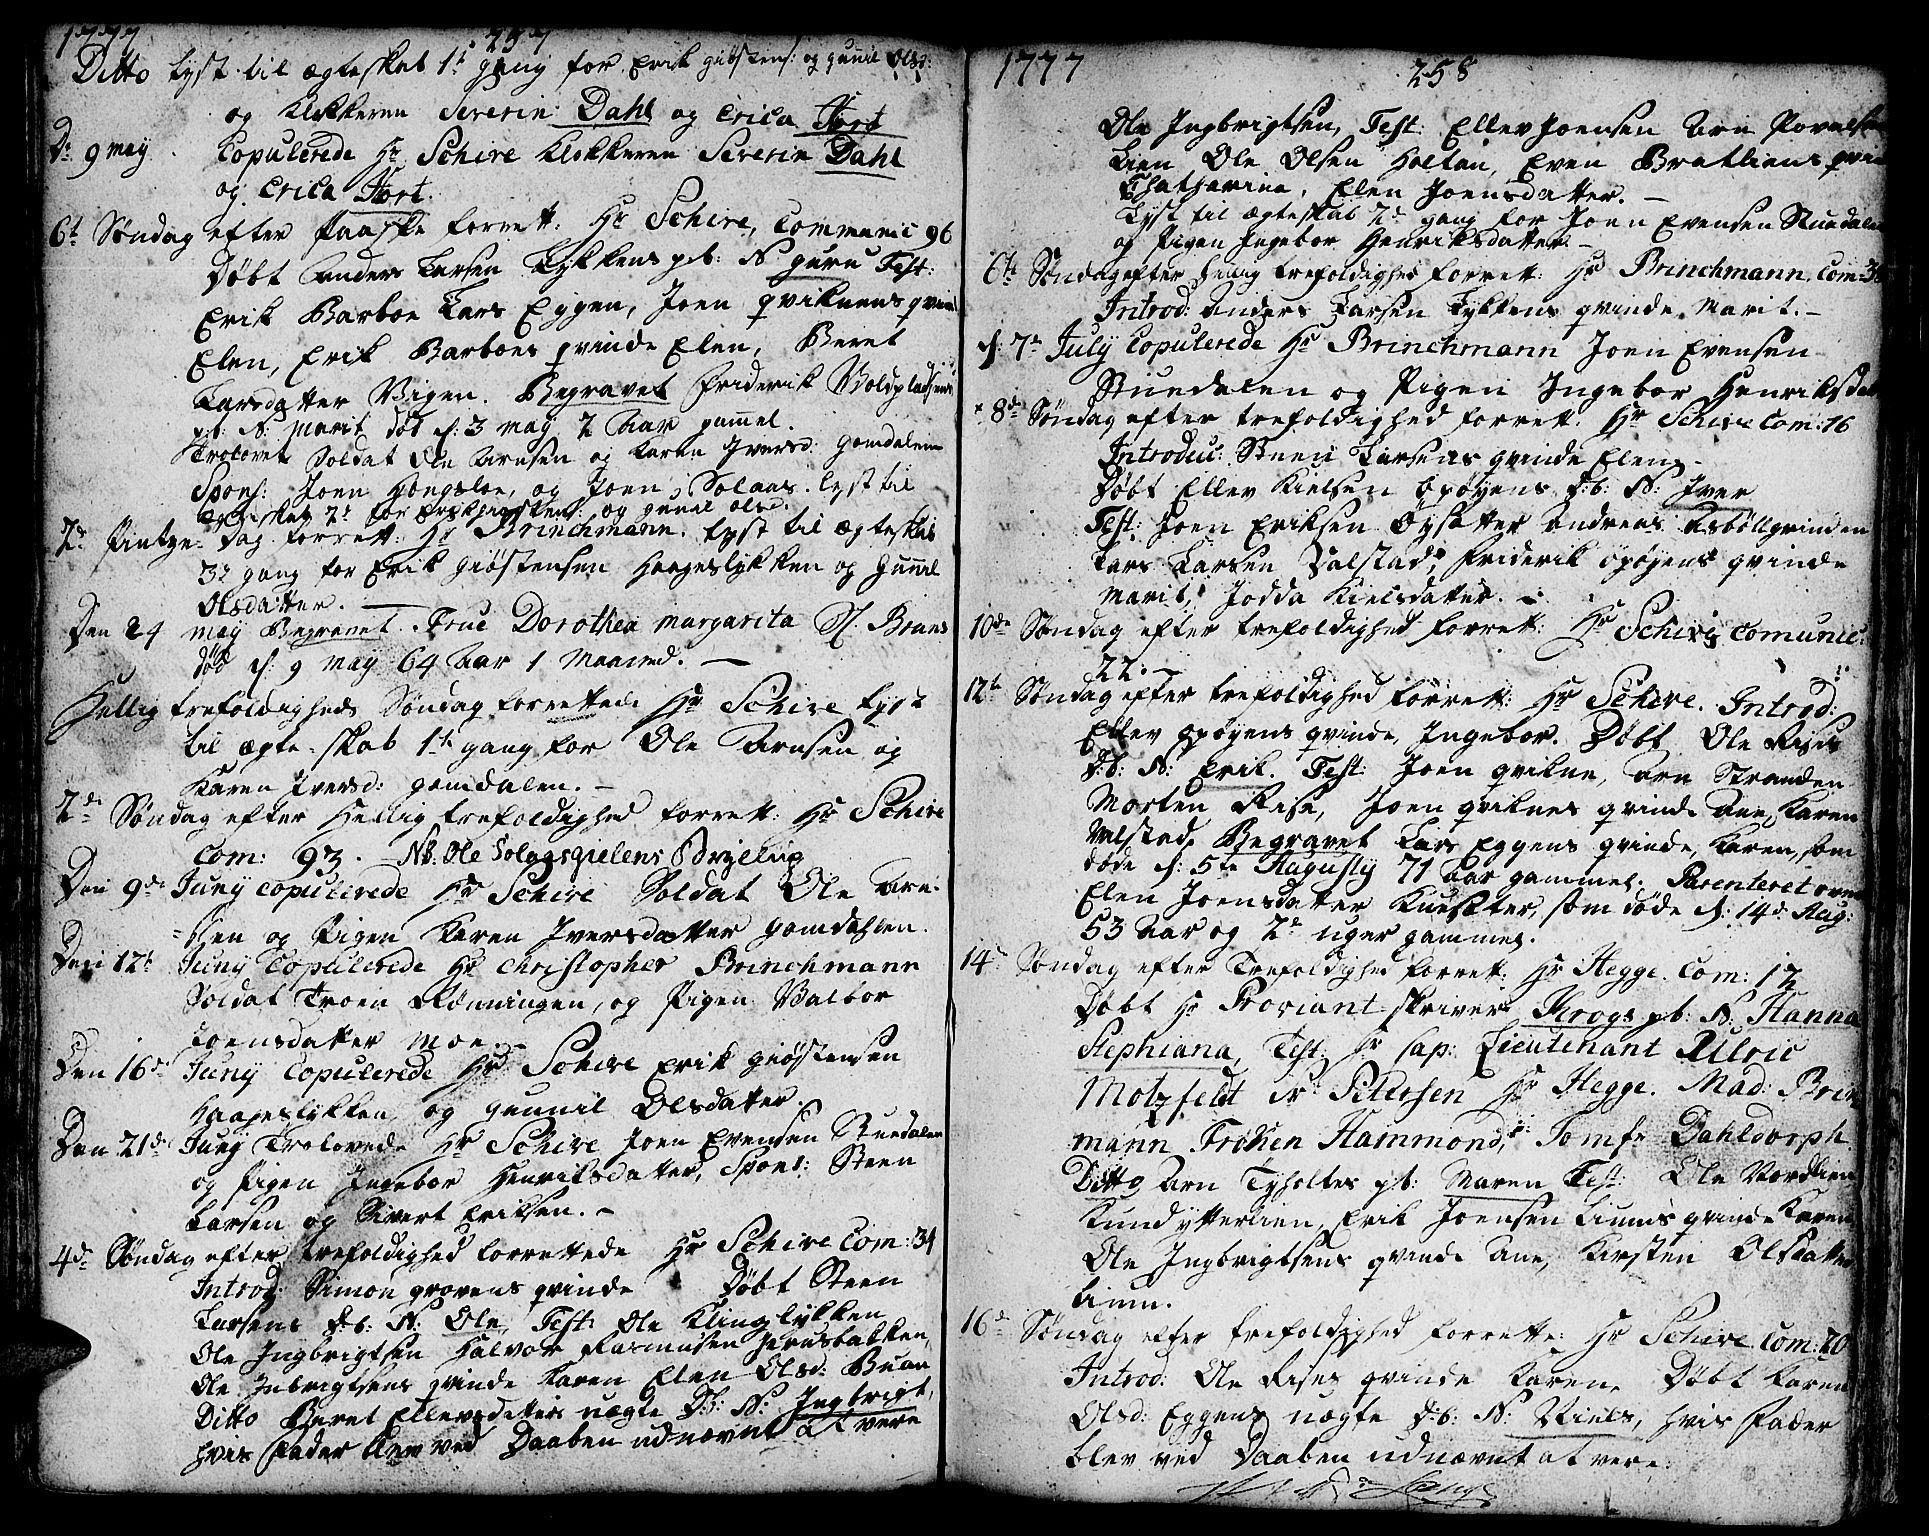 1777 257
Ditto lyst til ægteskab 1te gang for Erik Giøstens: og Gunnil Olsd:
og Klokkeren Severin Dahl og Erica Hort
D: 9 May Copulerede Hr Schive Klokkeren Severin Dahl
og Erica Hort.
6t Søndag efter Paaske forrett: Hr Schive, Communic 96
Døbt Anders Larsen Lykkens pb: N. guru Test:
Erik Barboe Lars Eggen, Joen Qviknens qvinde
Elen, Erik Barboes qvinde Elen, Beret
Larsdatter Vigen. Begravet Friderik Voldpladsens
pb: N. Marit død d: 3 May 2 Aar gammel.
Troloved Soldat Ole Arnsen og Karen Iversd: Gomdalen
Spons: Joen Hongsloe, og Joen Solaas. lyst til
ægteskab 2d for Erik Giøstens: og Gunil Olsd.
2d Pintze-Dag forrett: Hr Brinchmann. Lyst til ægteskab
3de gang for Erik Giøstensen Haageslykken og Gunnil
Olsdatter.
Den 24 May Begravet Frue Dorothea Margarita Sl. Bruns
død d: 9 May 64 Aar 1 Maaned.
Hellig trefoldigheds Søndag forrettede Hr Schive lyst
til ægte-skab 1te gang for Ole Arnsen og
Karen Iversd: Gomdalen.
2de Søndag efter Hellig trefoldighed forrett: Hr Schive
Com: 93. NB. Ole Solaas
Den 9de Juny copulerede Hr Schive Soldat Ole Arn-
sen og Pigen Karen Iversdatter Gomdahlen.
Den 12te Juny Copulerede Hr Christopher Brinchmann
Soldat Troen Rønningen, og Pigen Valbor
Joensdatter Moe.
Den 16de Juny Copulerede Hr Schive Erik Giøstensen
Haageslykken og Gunnil Olsdatter.
Den 21de Juny Trolovede Hr Schive Joen Evensen Stuedalen
og Pigen Ingebor Henriksdatter, Spons: Steen
Larsen og Sivert Eriksen.
4de Søndag efter trefoldighed forrettede Hr Schive Com: 34
Introd: Simon Grovens qvinde Døbt Steen
Larsens d:b: N: Ole, Test: Ole Klinglykken
Ole Ingbrigtsen Halvor Rasmusen Jernbakken,
Ole Inbrigtsens qvinde Karen Elen Olsd: Buan
Ditto Beret Ellevsdatters uægte D:b: N: Ingbrigt,
hvis Fader blev ved Daaben udnævnt at være
1777 258
Ole Ingbrigtsen, Test: Ellev Joensen Arn Povelsen
Lien Ole Olsen Holtan, Even Bratliens qvinde
Chatharina, Elen Joensdatter.
Lyst til ægteskab 2de gang for Joen Evensen Stuedalen
og Pigen Ingebor Henriksdatter.
6te Søndag efter hellig trefoldighed forrett: Hr Brinchmann, Com: 38
Introd: Anders Larsen Lykkens qvinde Marit.
d: 7de July Copulerede Hr Brinchmann Joen Evensen
Stuedalen og Pigen Ingebor Henriksdat
8de Søndag efter trefoldighed forrett: Hr Schive Com: 16
Introduc: Steen Larsens qvinde Elen
Døbt Ellev Kielsen Opøyens d:b: N: Iver
Test: Joen Eriksen Andreas
Lars Larsen Zalstad, Friderik Opøyens qvinde
Marit, Jodda Kielsdatter.
10de Søndag efter trefoldighed forrett: Hr Schive Comunic:
22.
12te Søndag efter trefoldighed forrett: Hr Schive. Introd:
Ellev Opøyens qvinde, Ingebor. Døbt Ole Rises
d:b: N: Erik. Test: Joen Qvikne, Arn Stranden
Morten Rise, Joen Qviknes qvinde Ane, Karen
Valstad, Begravet Lars Eggens qvinde, Karen, som
døde d: 5te Augusty 71 Aar gammel. Parenteret over
Elen Joensdatter som døde d: 14de Aug:
53 Aar og 2de uger gammel.
14de Søndag efter Trefoldighed forrett: Hr Hegge. Com: 12
Døbt Hr Proviant skriver Krogs pb: N: Hanna
Stephiana, Test: Hr Cap: Lieutenant Ulric
Motzfeldt Hr Petersen Hr Hegge. Mad: Brin
mann Frøken Hammond, Jomfr Dahldorph
Ditto Arn Tyholtes pb: Maren Test: Ole Nordlien
Knud Ytterlien, Erik Joensen Liums qvinde Karen,
Ole Ingbrigtsens qvinde Ane, Kirsten Olsdatter
Lium.
16de Søndag efter trefoldighed forrette: Hr Schive Com: 20
Introd: Ole Rises qvinde Karen, Døbt Karen
Olsd: Eggens uægte d:b: N: Niels, hvis Fader
blev ved Daaben udnævnt at være: